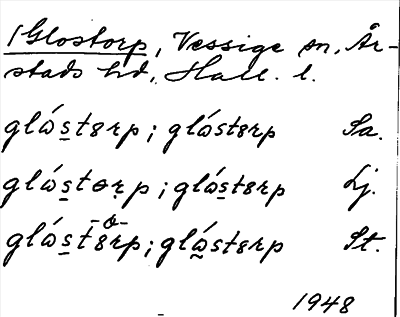 /Glostorp, Vessige sn, År-
stads hd, Hall. l.
glós̲tɛrp; glóstɛrp Sa.
glós̲tɵṛp; glós̲tɛrp Lj.
glós̲tɛrp; gló̰stɛrp St.
-ɵ-
1948